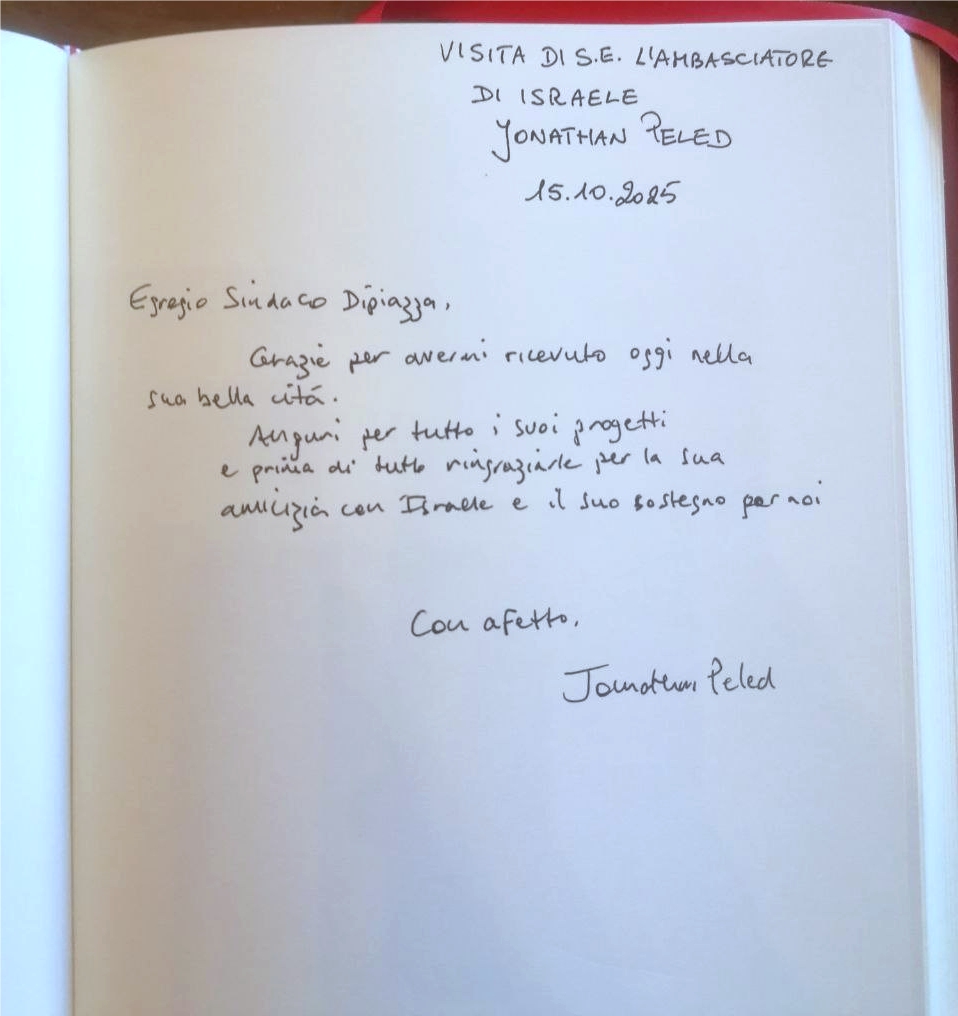 VISITA DI S.E. L'AMBASCIATORE
DI ISRAELE
JONATHAN PELED
15.10.2025
Egregio Sindaco Dipiazza,
Grazie per avermi ricevuto oggi nella
sua bella cittá.
Auguri per tutto i suoi progetti
e prima di tutto ringraziarle per la sua
amicizia con Israele e il suo sostegno per noi
Con afetto,
Jonathan Peled